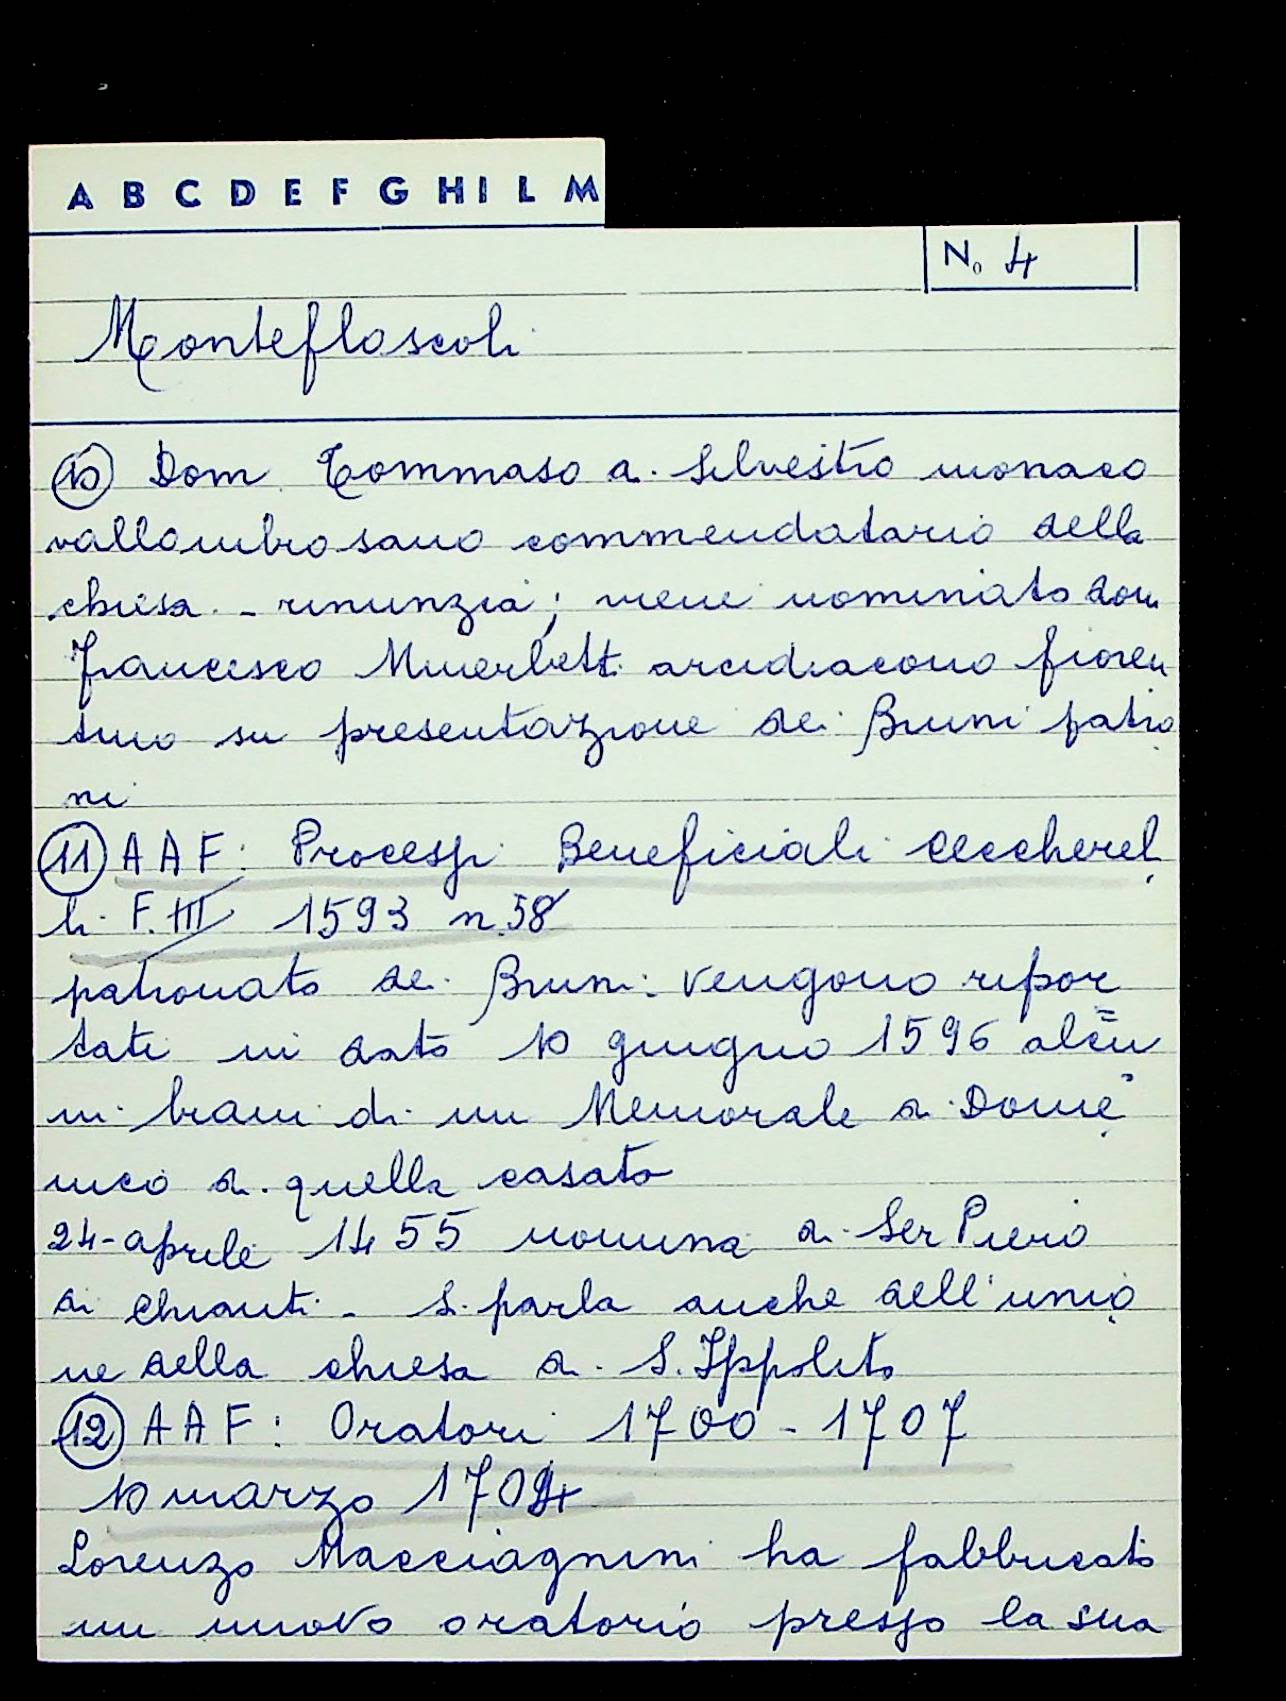 A B C D E F G H I L M
No 4
Montefloscoli
10 Dom Tommaso di Silvestro monaco
vallombrosano commendatario della
chiesa - rinunzia; viene nominato don
Francesco Minerbetti arcidiacono fioren
tino su presentazione dei Bruni patro
ni
11 AAF: Processi Beneficiali Ceccherel
li F. III 1593 n. 58
patronato dei Bruni. Vengono ripor
tati in dato 10 giugno 1596 alcu
ni brani di un Memoriale di Dome
nico di quella casato
24-aprile 1455 nomina di Ser Piero
di Chianti - Si parla anche dell'unio
ne della chiesa di S. Ippolito
12 AAF: Oratori 1700 - 1707
10 marzo 1704
Lorenzo Macciagnini ha fabbricato
un nuovo oratorio presso la sua